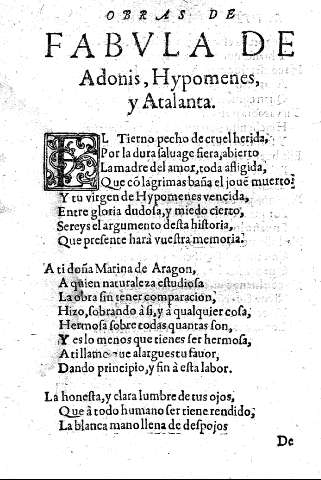 OBRAS DE
FABVLA DE
Adonis, Hypomenes,
y Atalanta.
EL Tierno pecho de cruel herida,
Por la dura saluage fiera, abierto
La madre del amor, toda afligida,
Que cõ lagrimas baña el joué muerto?
Y tu virgen de Hypomenes vencida,
Entre gloria dudosa, y miedo cierto,
Sereys el argumento desta historia,
Que presente harà vuestra memoria.
A ti doña Marina de Aragon,
A quien naturaleza estudiosa
La obra sin tener comparacion,
Hizo, sobrando à si, y à qualquier cosa,
Hermosa sobre todas quantas son,
Y es lo menos que tienes ser hermosa,
A ti llamo que alargues tu fauor,
Dando principio, y fin à esta labor.
La honesta, y clara lumbre de tus ojos,
Que à todo humano ser tiene rendido,
La blanca mano llena de despojos
De